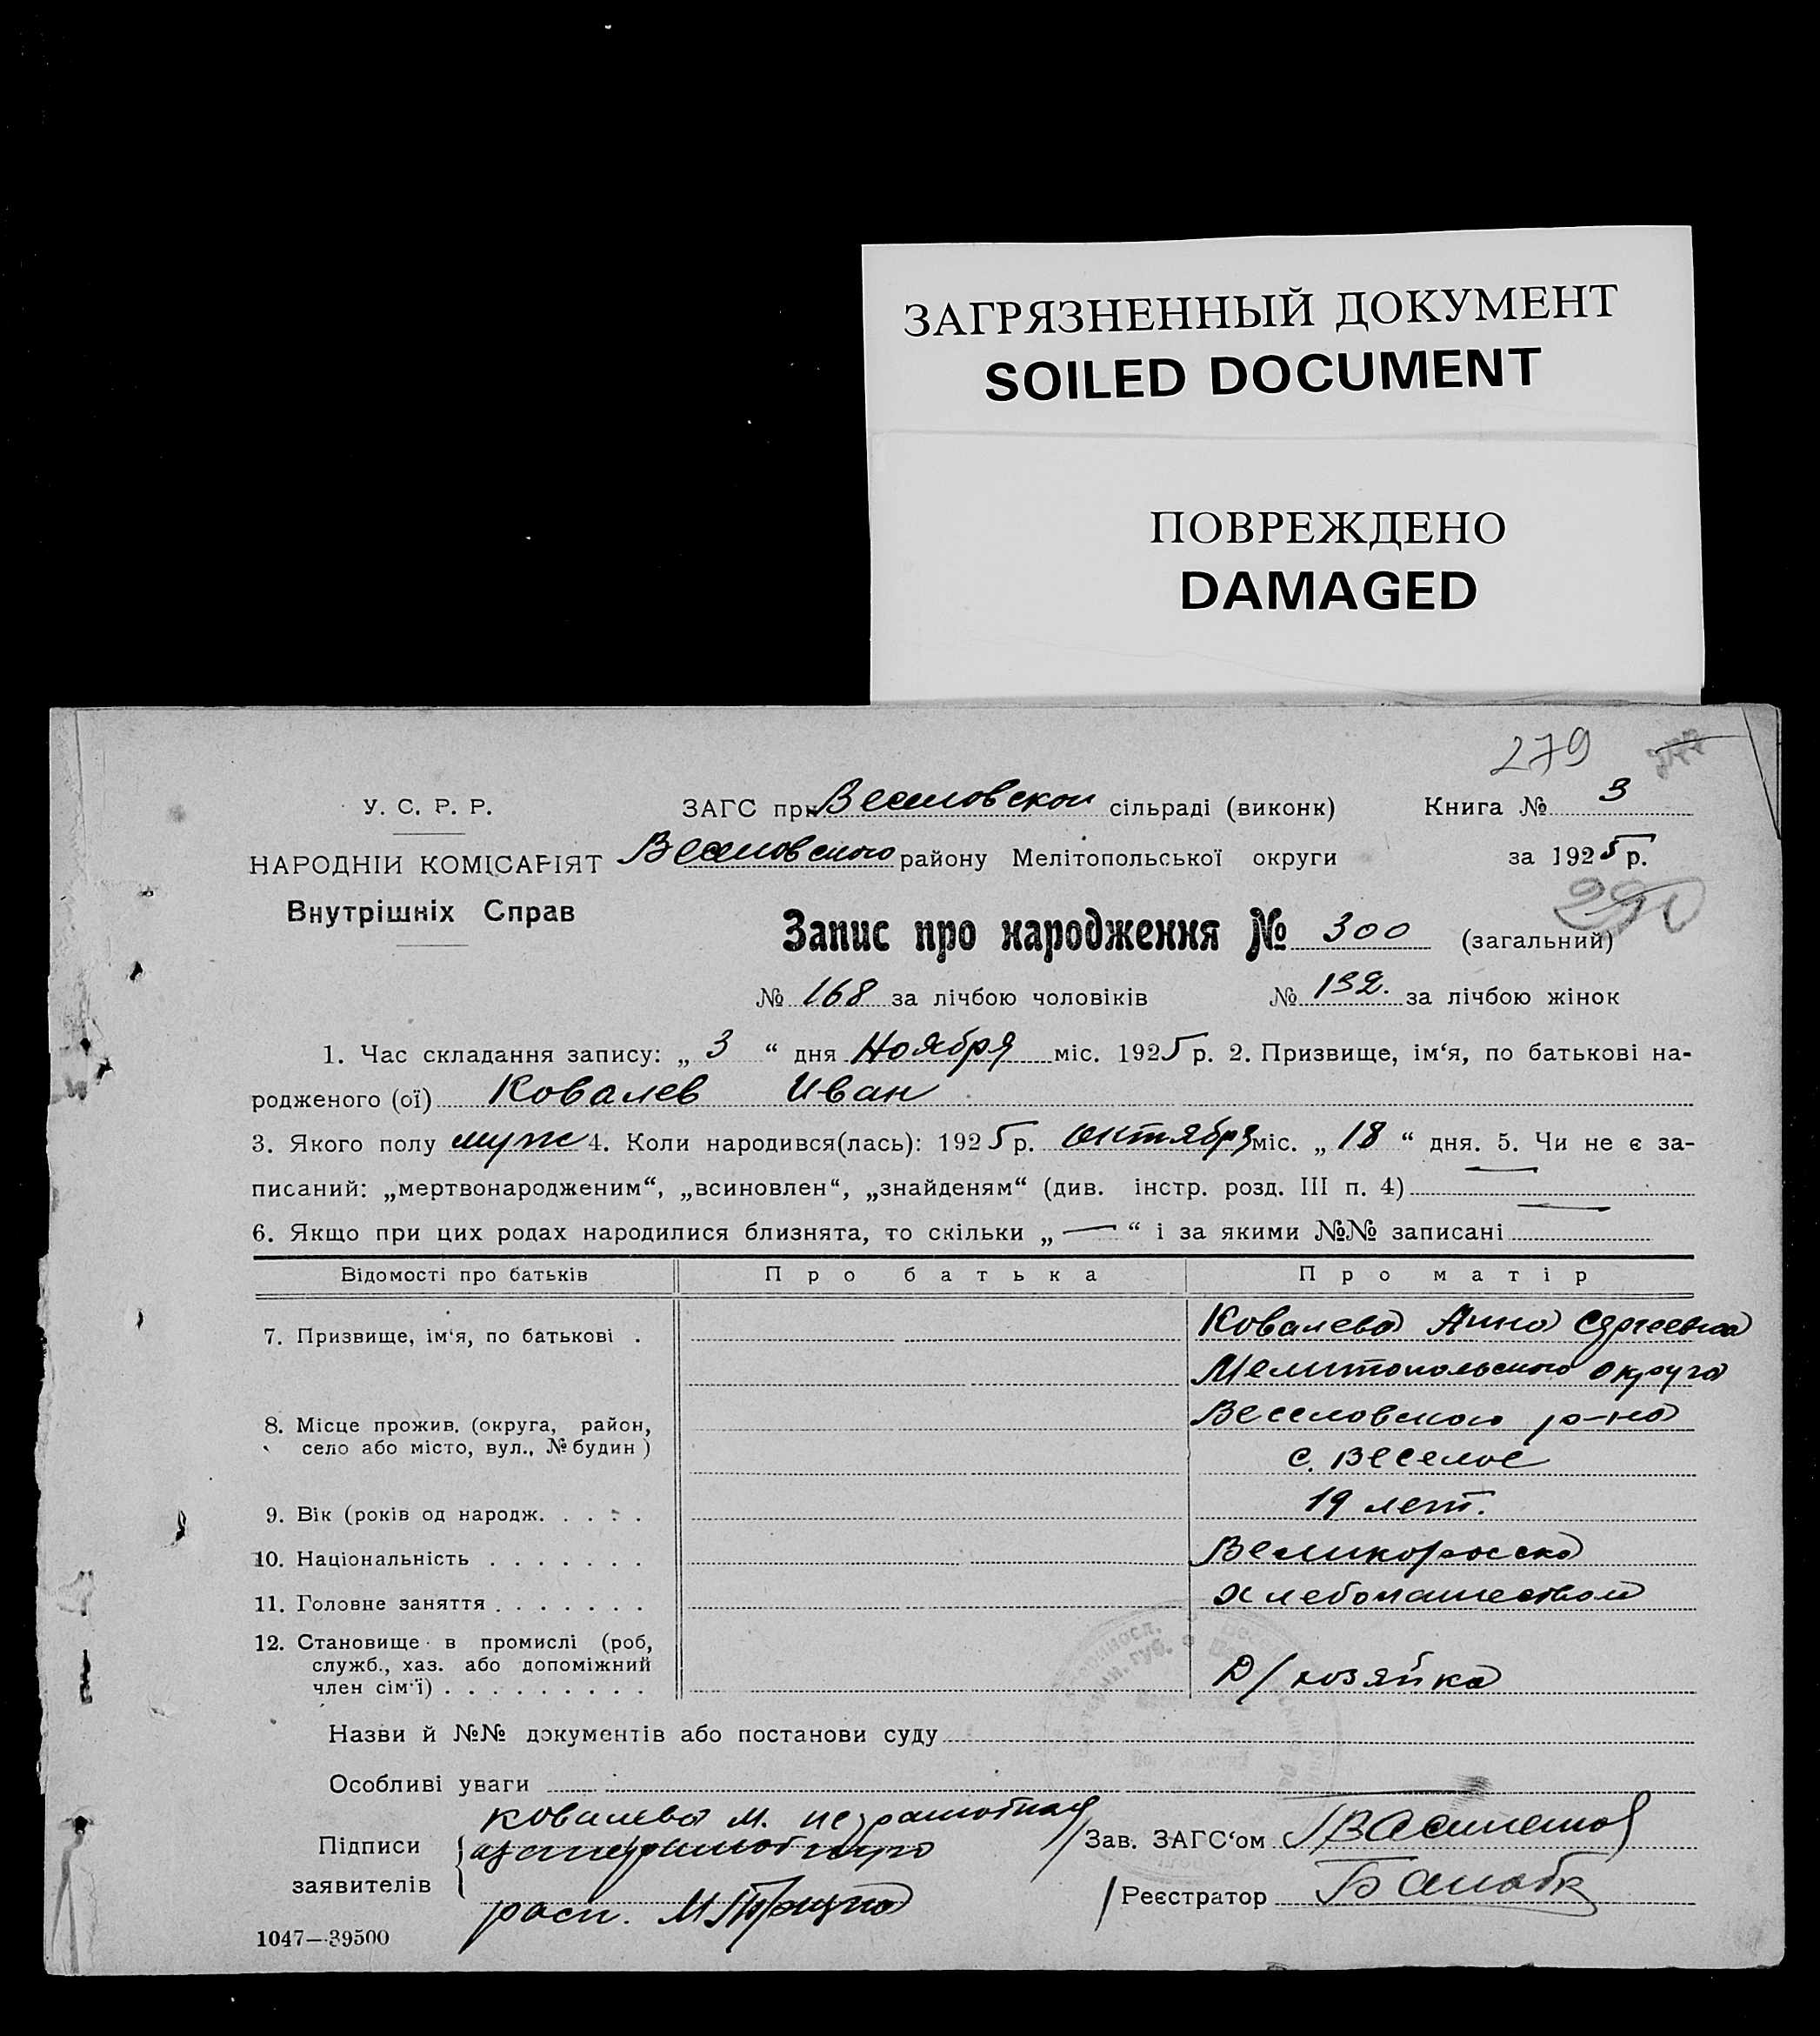 ЗАГРЯЗНЕННЫЙ ДОКУМЕНТ
SOILED DOCUMENT
ПОВРЕЖДЕНО
DAMAGED
279
У. С. Р. Р.
ЗАГС при Веселовской сільраді (виконк) Книга № 3
НАРОДНІЙ КОМІСАРІЯТ Веселовского району Мелітопольської округи за 1925 р.
Внутрішніх Справ
Запис про народження № 300 (загальний)
№ 168 за лічбою чоловіків № 132. за лічбою жінок
1. Час складання запису: „ 3 “ дня Ноября міс. 1925 р. 2. Призвище, ім‘я, по батькові на-
родженого (ої) Ковалев Иван
3. Якого полу муж 4. Коли народився(лась): 1925 р. Октября міс. „ 18 “ дня. 5. Чи не є за-
писаний: „мертвонародженим“, „всиновлен“, „знайденям“ (див. інстр. розд. III п. 4)
6. Якщо при цих родах народилися близнята, то скільки „ — “ і за якими №№ записані
Відомості про батьків Про батька Про матір
7. Призвище, ім‘я, по батькові . Ковалева Анна Сергеевна
Мелитопольского округа
8. Місце прожив. (округа, район, Веселовского р-на
село або місто, вул., № будин ) с. Веселое
9. Вік (років од народж. . . . . 19 лет.
10. Національність . . . . . . . Великоросска
11. Головне заняття . . . . . . . Хлебопашеством
12. Становище в промислі (роб,
служб., хаз. або допоміжний
член сім‘ї) . . . . . . . . . Д/хозяйка
Назви й №№ документів або постанови суду
Особливі уваги
Ковалева М. неграмотная
Підписи Зав. ЗАГС‘ом
заявителів расп. Реєстратор
1047—39500